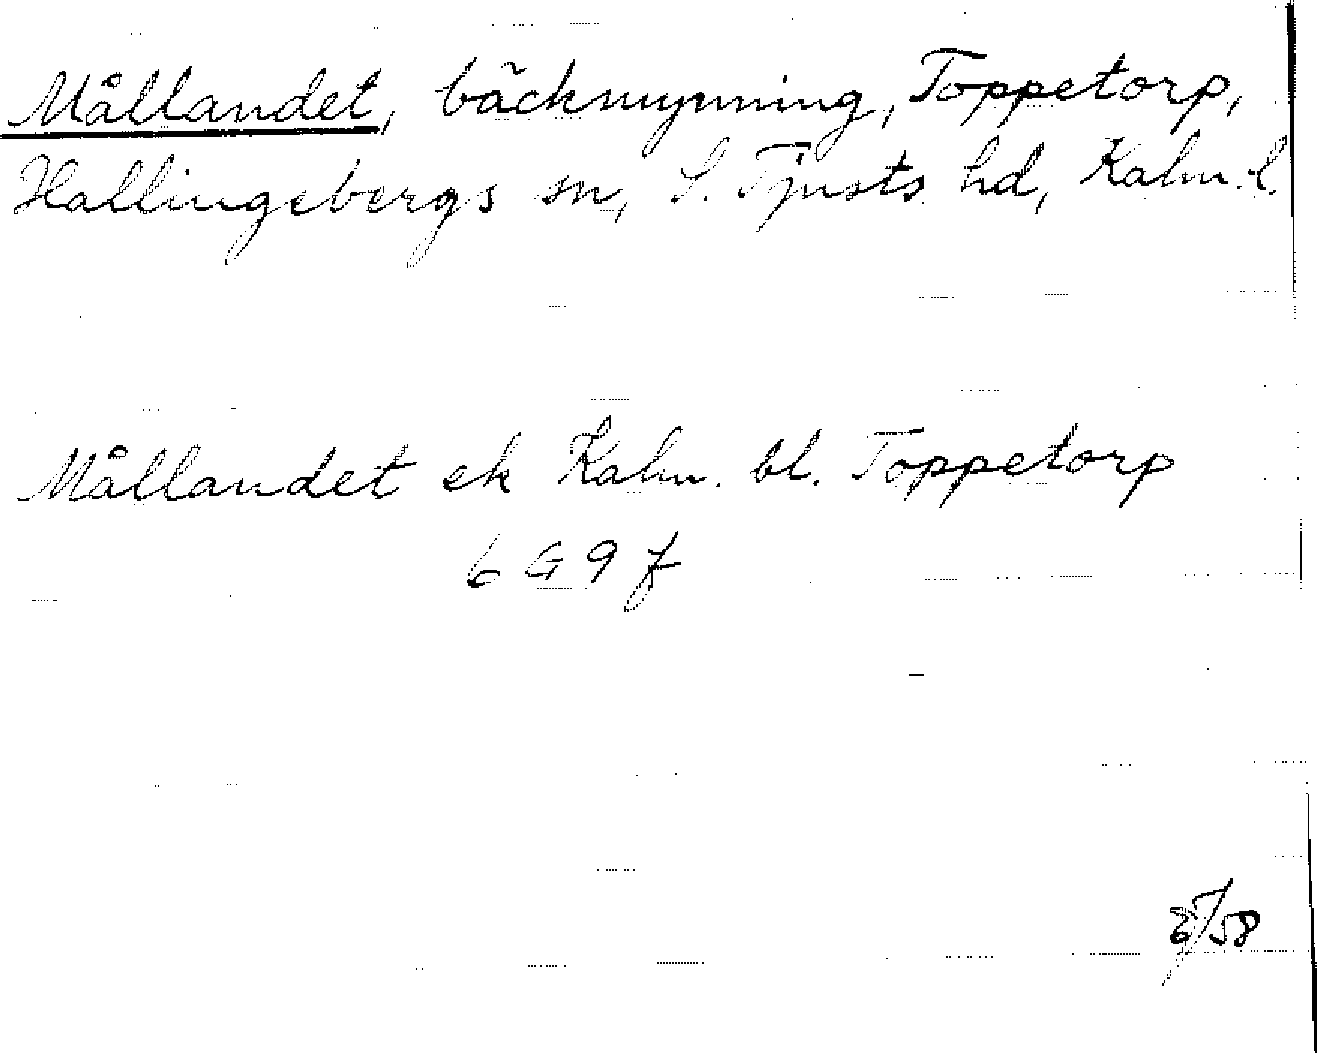 Mållandet, bäckmynning, Toppetorp,
Hallingebergs sn, S. Tjusts hd, Kalm. l.
Mållandet ek Kalm. bl. Toppetorp
6 G 9 f
8/58